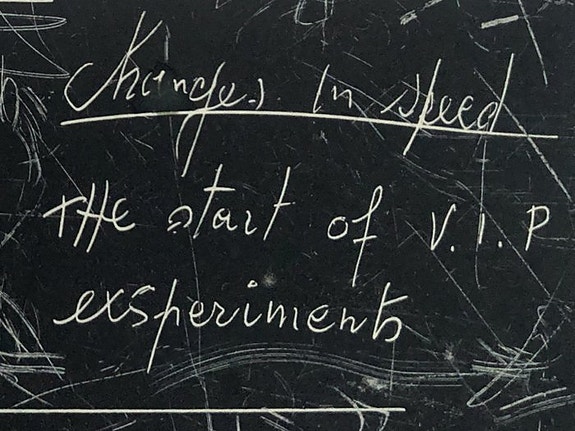 Changes in speed
THE start of V.I.P
exsperiments